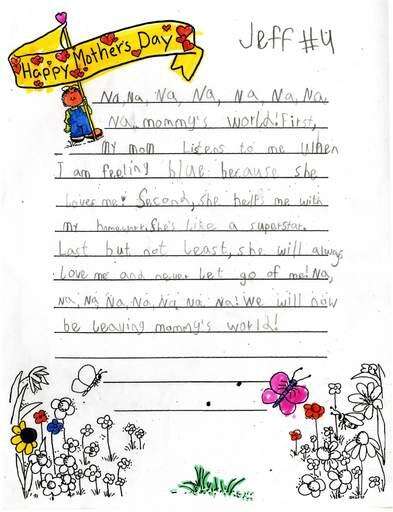 Happy Mother's Day
Jeff #4
Na, Na, Na, Na, Na, Na, Na
Na, mommy's world! First,
My mom Listens to me When
I am feeling blue because she
Loves me! Second, she helps me with
my homework. She's Like a superstar.
Last but not Least, she will always
Love me and never Let go of me! Na,
Na, Na, Na, Na, Na, Na, Na! We will now
be Leaving mommy's world!